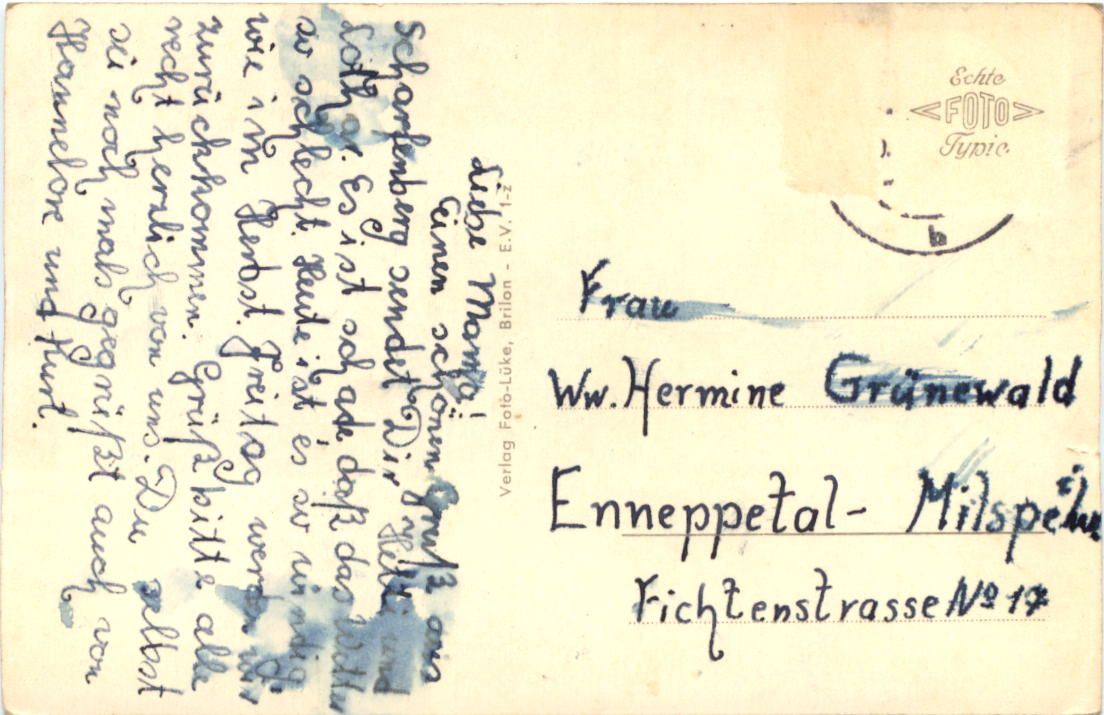 Liebe Mama!
Einen schönen Gruß aus
Scharfenberg sendet Dir Helga und
Lothar. Es ist schade, daß das Wetter
so schlecht. Heute ist es so windig
wie im Herbst. Freitag werden wir
zurückkommen. Grüß bitte alle
recht herzlich von uns. Du selbst
sei noch mals gegrüßt auch von
Hannelore und Kurt.
Verlag Foto-Lüke, Brilon - E.V. 1-z
Echte
FOTO
Typie
b
Frau
Ww. Hermine Grünewald
Enneppetal-
Fichtenstrasse No 17